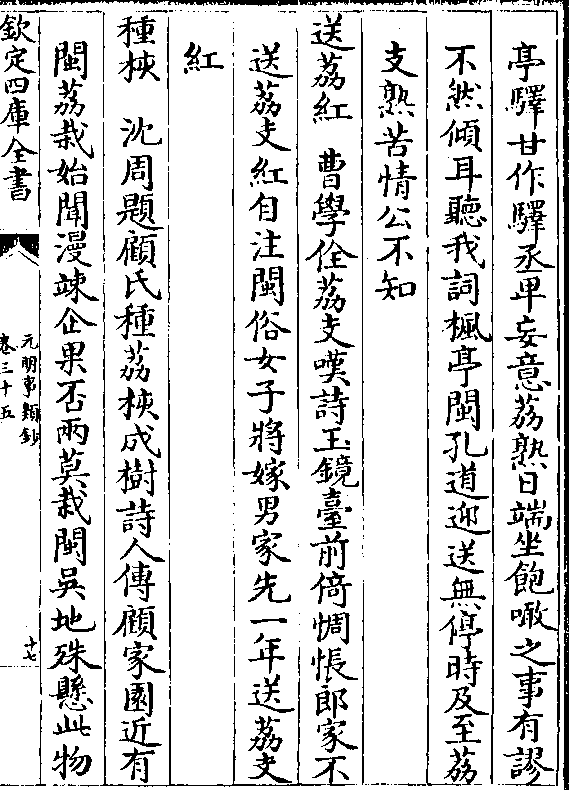 亭驛甘作驛丞卑妄意荔熟日端坐飽噉之事有謬
不然傾耳聽我詞楓亭閩孔道迎送無停時及至荔
支熟苦情公不知
送荔紅　曹學佺荔支嘆詩玉鏡臺前倚惆悵郎家不
送荔支紅自注閩俗女子將嫁男家先一年送荔支
紅
種核　沈周題顧氏種荔核成樹詩人傳顧家園近有
閩荔栽始聞漫竦企果否兩莫裁閩吳地殊懸此物
欽定四庫全書
元明事類鈔
卷三十五
十七